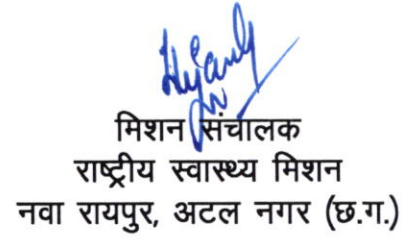 मिशन संचालक
राष्ट्रीय स्वास्थ्य मिशन
नवा रायपुर, अटल नगर (छ.ग.)